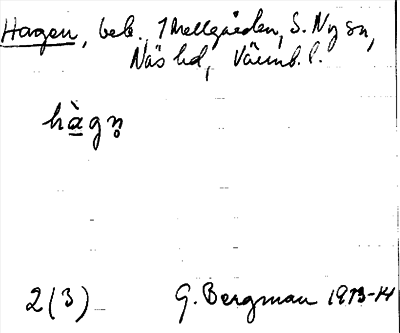 Hagen, beb. 1 Mellgården, S. Ny sn,
Näs hd, Värml. l.
hàgn̥
2(3) G. Bergman 1913-14